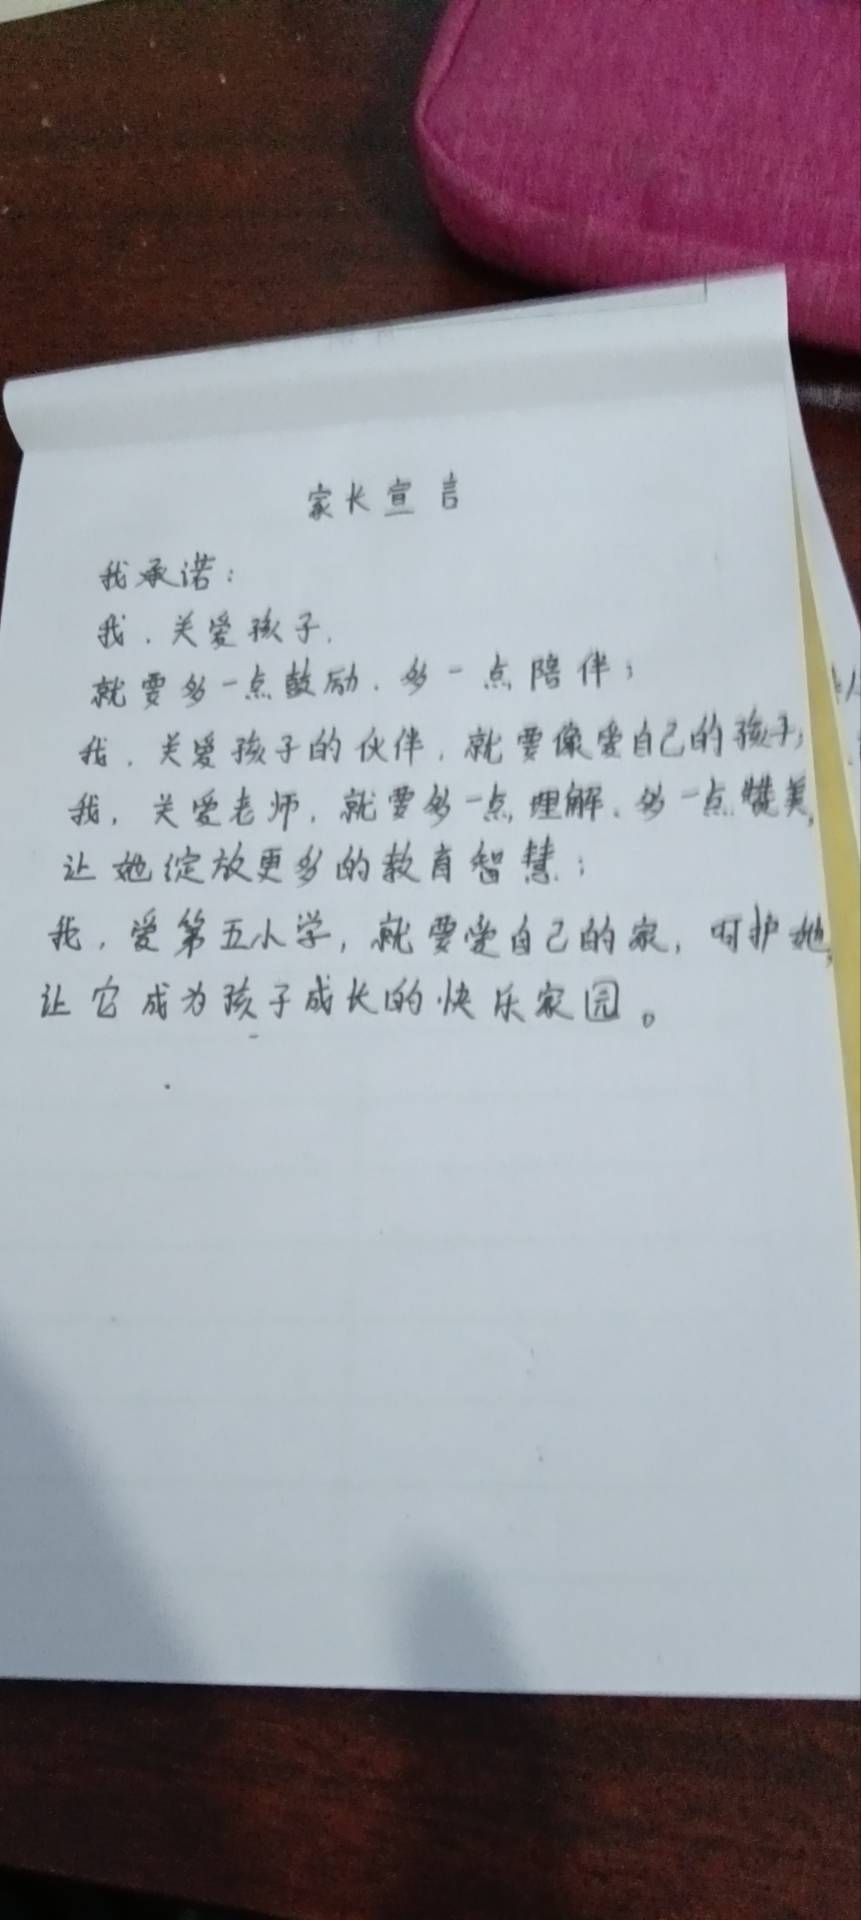 家长宣言
我承诺：
我，关爱孩子，
就要多一点鼓励、多一点陪伴；
我，关爱孩子的伙伴，就要像爱自己的孩子；
我，关爱老师，就要多一点理解、多一点赞美，
让她绽放更多的教育智慧；
我，爱第五小学，就要爱自己的家，呵护她，
让它成为孩子成长的快乐家园。